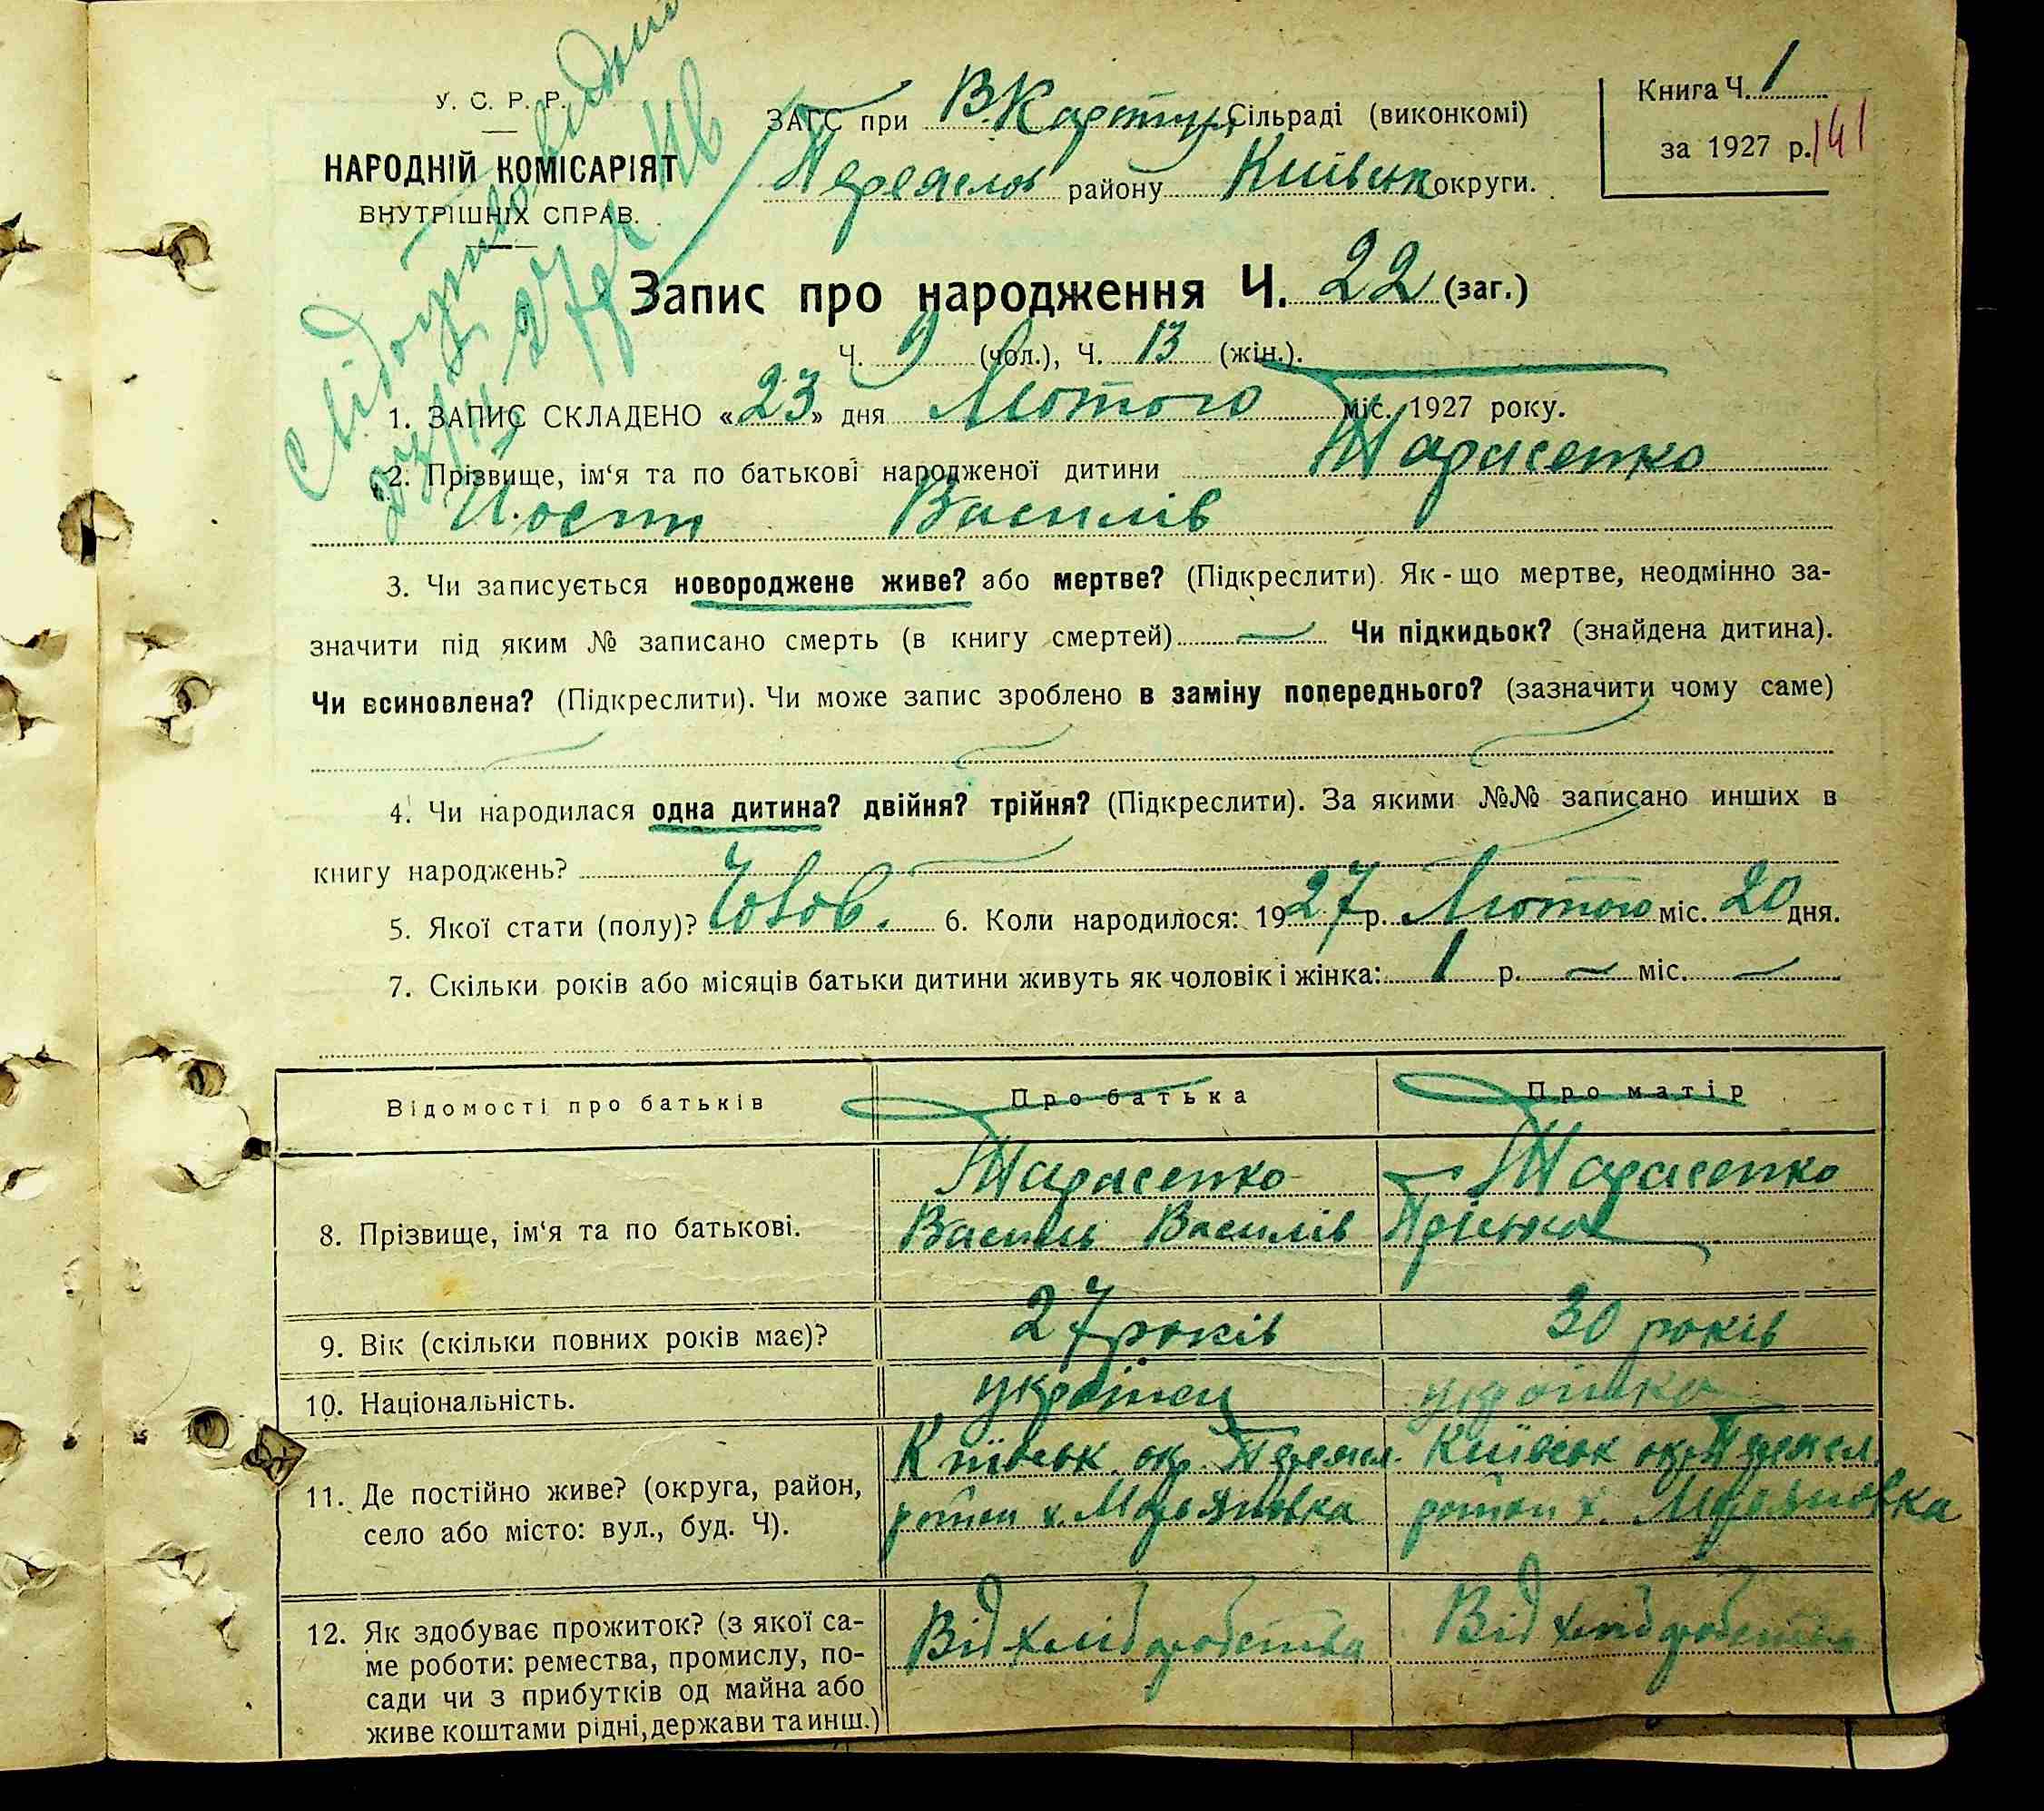 У. С. Р. Р.
НАРОДНІЙ КОМІСАРІЯТ
ВНУТРІШНІХ СПРАВ.
ЗАГС при В. Картул Сільраді (виконкомі)
Переясл району Київськ округи.
Книга Ч. 1
за 1927 р. 141
Запис про народження Ч. 22 (заг.)
Ч. 9 (чол.), Ч. 13 (жін.).
1. ЗАПИС СКЛАДЕНО «23» дня Лютого міс. 1927 року.
2. Прізвище, ім'я та по батькові народженої дитини Тарасенко
Йосип Василів
3. Чи записується новороджене живе? або мертве? (Підкреслити). Як-що мертве, неодмінно за-
значити під яким № записано смерть (в книгу смертей) — Чи підкидьок? (знайдена дитина).
Чи всиновлена? (Підкреслити). Чи може запис зроблено в заміну попереднього? (зазначити чому саме)
4. Чи народилася одна дитина? двійня? трійня? (Підкреслити). За якими №№ записано инших в
книгу народжень?
5. Якої стати (полу)? Чолов. 6. Коли народилося: 1927 р. Лютого міс. 20 дня.
7. Скільки років або місяців батьки дитини живуть як чоловік і жінка: 1 р. — міс. —
Відомості про батьків Про батька Про матір
8. Прізвище, ім'я та по батькові.
Тарасенко
Василь Василів
Тарасенко
Пріська
9. Вік (скільки повних років має)? 27 років 30 років
10. Національність. українец українка
11. Де постійно живе? (округа, район,
село або місто: вул., буд. Ч).
Київськ. окр. Переясл.
район х. Мар'яновка
Київськ окр. Переясл.
район х. Мар'яновка
12. Як здобуває прожиток? (з якої са-
ме роботи: ремества, промислу, по-
сади чи з прибутків од майна або
живе коштами рідні, держави та инш.)
Від хліборобства
Від хліборобства